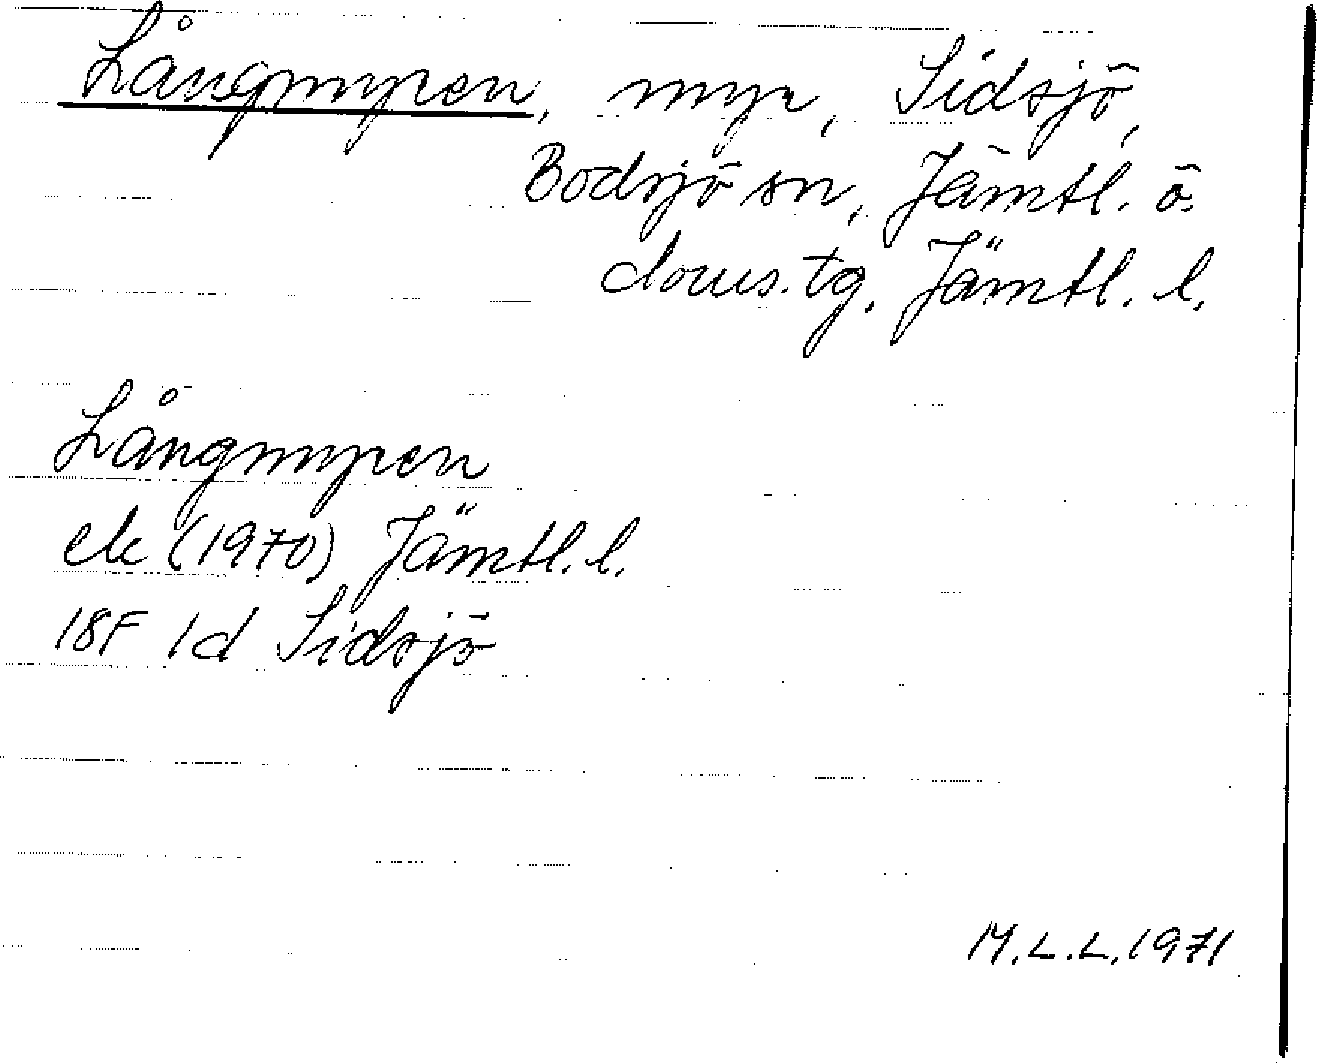 Långmyren, myr, Sidsjö,
Bodsjö sn, Jämtl. ö.
doms.tg. Jämtl. l.
Långmyren
ek (1970) Jämtl. l.
18F 1d Sidsjö
M.L.L. 1971